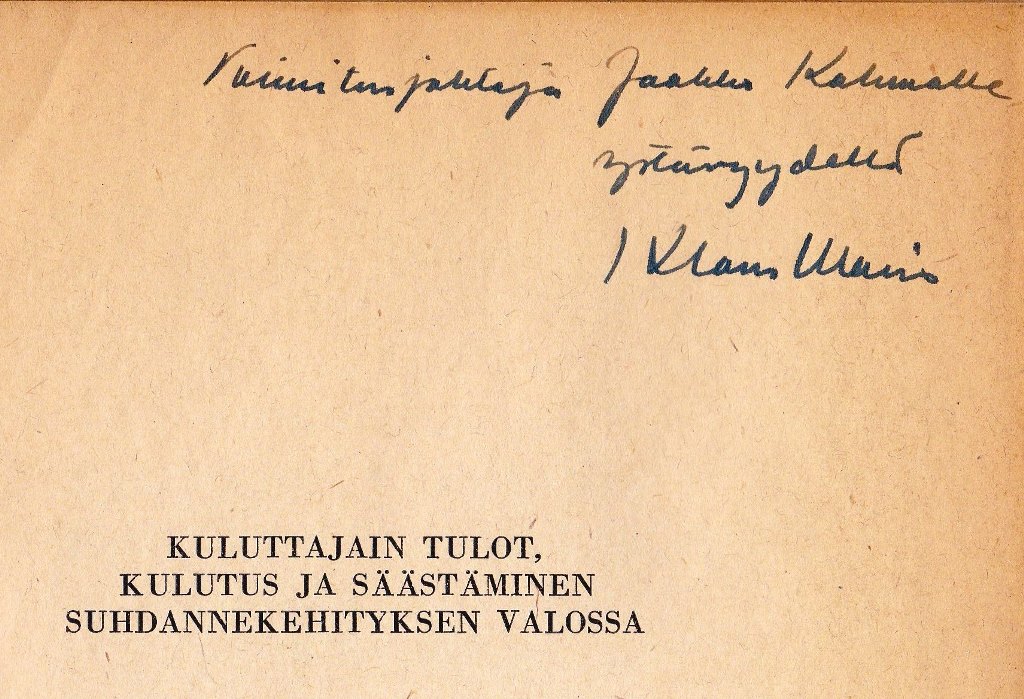 Toimitusjohtaja Jaakko Kahmalle
ystävyydellä
Klaus Waris
KULUTTAJAIN TULOT,
KULUTUS JA SÄÄSTÄMINEN
SUHDANNEKEHITYKSEN VALOSSA